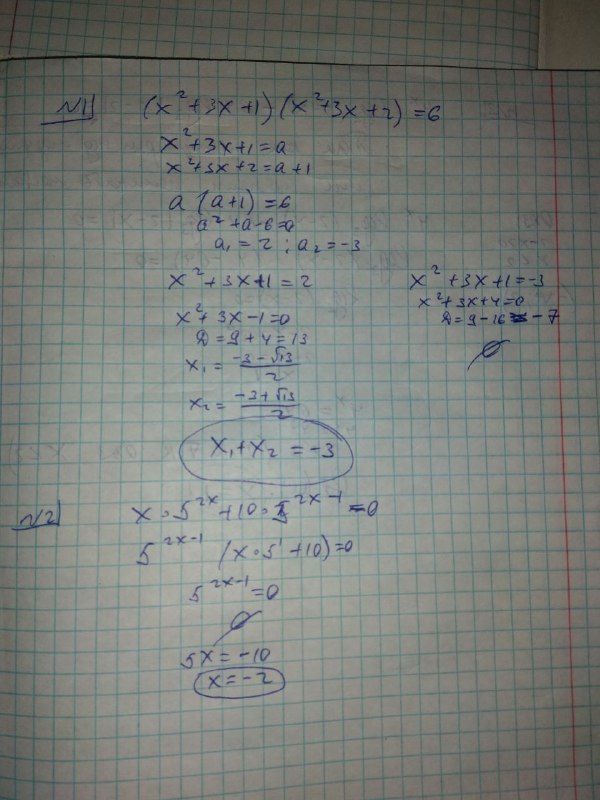 N1 (x²+3x+1)(x²+3x+2)=6
x²+3x+1=a
x²+3x+2=a+1
a(a+1)=6
a²+a-6=0
a₁=2; a₂=-3
x²+3x+1=2
x²+3x-1=0
D=9+4=13
x₁=(-3-√13)/2
x₂=(-3+√13)/2
x₁+x₂=-3
x²+3x+1=-3
x²+3x+4=0
D=9-16=-7
∅
N2 x·5^(2x)+10·5^(2x-1)=0
5^(2x-1)(x·5¹+10)=0
5^(2x-1)=0
∅
5x=-10
x=-2